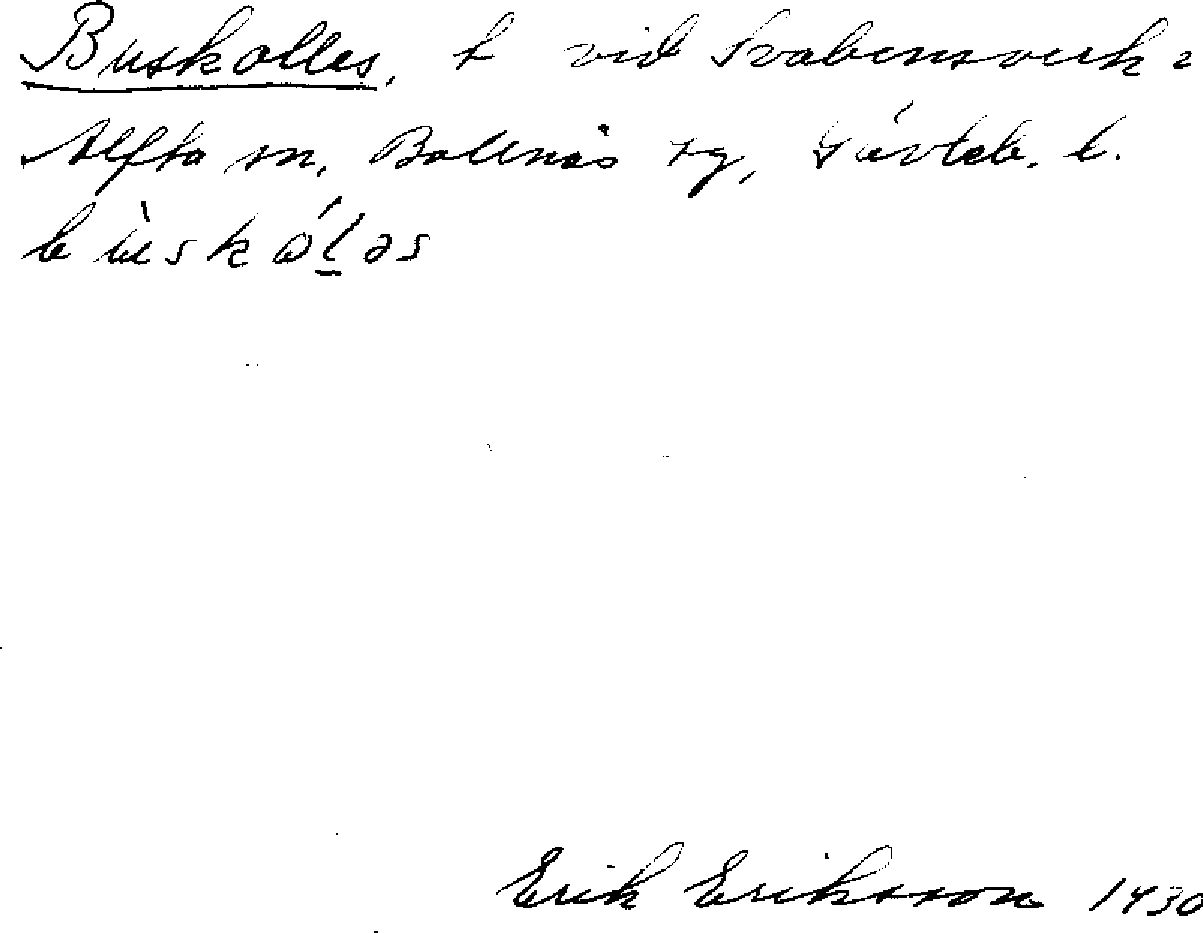 Buskolles, t vid Svabensverk i
Alfta sn, Bollnäs tg, Gävleb. l.
bu̇̀skól̲əs
Erik Eriksson 1930